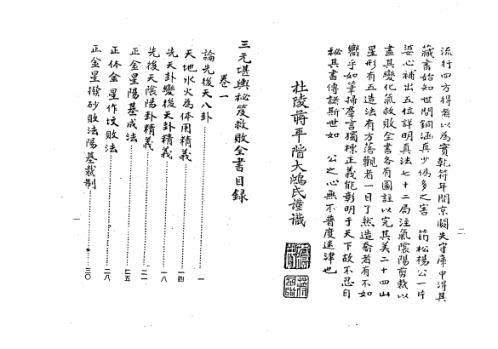 流行四方得者以為寶乾符年間京闕失守庫中得其
藏書始知世間銅函真少偽多之害 筠松楊公一片
婆心補出五位詳明真法七十二局注氣陰陽剪裁以
盡其變化氣救敗全書各有圖註以完其美二十四山
星形有五造法有方落觀者一目了然造葬者有不如
嚮乎如筆掃羣言獨標正義能彰明于天下故不忍自
秘其書傳諸斯世如 公之心無不普度迷津也
杜陵蔣平階大鴻氏謹識
一
三元堪輿秘笈救敗全書目錄
卷一
論先後天八卦 一
天地水火為体用精義 四
先天卦變後天卦精義 一八
先後天陰陽卦精義 二一
正金星陽基成法 二五
正体金星作坟敗法 二八
正金星撥砂敗法陽基裁制 三〇